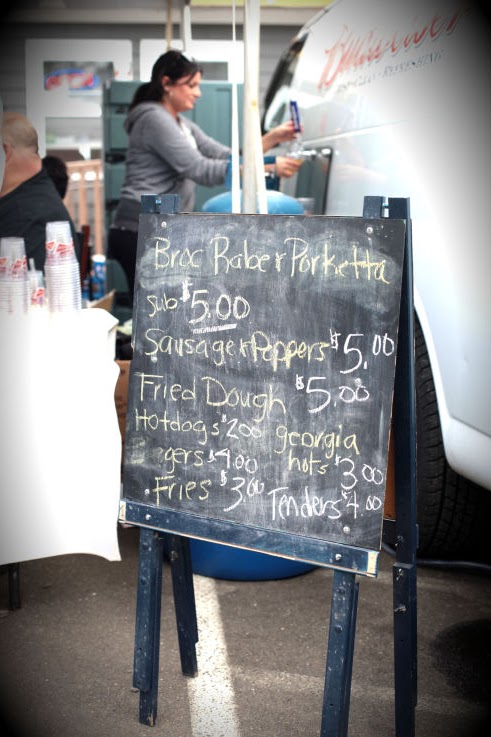 Budweiser
Broc Raber Porketta
Sub $5.00
Sausage & Peppers $5.00
Fried Dough $5.00
Hotdogs $2.00 georgia
gers $4.00 hots $3.00
Fries $3.00 Tenders $4.00